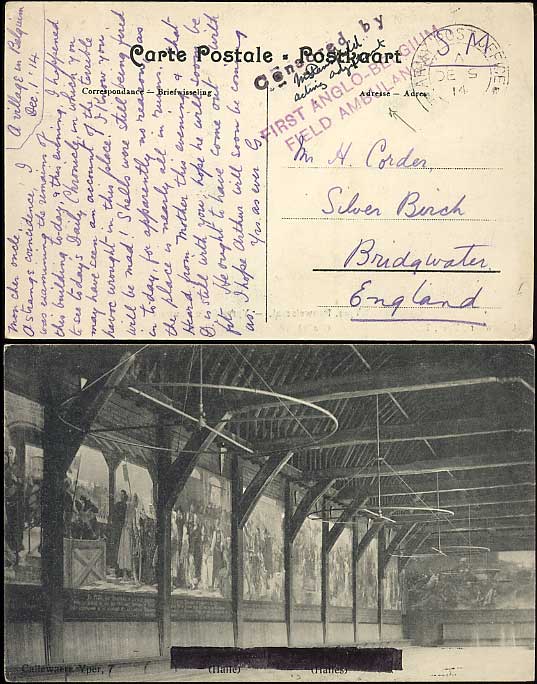 Carte Postale - Postkaart
Correspondance — Briefwisseling
Adresse — Adres
Censored by
acting adjutant
FIRST ANGLO-BELGIUM
FIELD AMBULAN
ARMY POST OFFICE
S.M
A
DE 5
14
A village in Belgium
Dec. 1. 14.
Mon cher oncle
A strange coincidence, I
was examining the remains of
this building today, & this evening I happened
to see today's Daily Chronicle, in which you
may have seen an account of the terrible
havoc wrought in this place! I know you
will be mad! Shells were still being fired
in today, for apparently no reason as
the place is nearly all in ruins.
Heard from Mother this evening & that
D. is still with you; hope he will soon be
fit. He ought to have come out with
us. I hope Arthur will soon be coming
Yrs as ever G.
Mr H. Corder,
Silver Birch
Bridgwater
England.
Callewaert Yper, 7
(Halle)
(Halles)